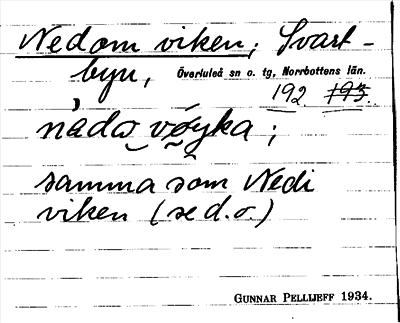 Nedom viken; Svart-
byn, Överluleå sn o. tg, Norrbottens län.
192 193.
nedω vøyka;
samma som Nedi
viken (se d.o.)
GUNNAR PELLIJEFF 1934.